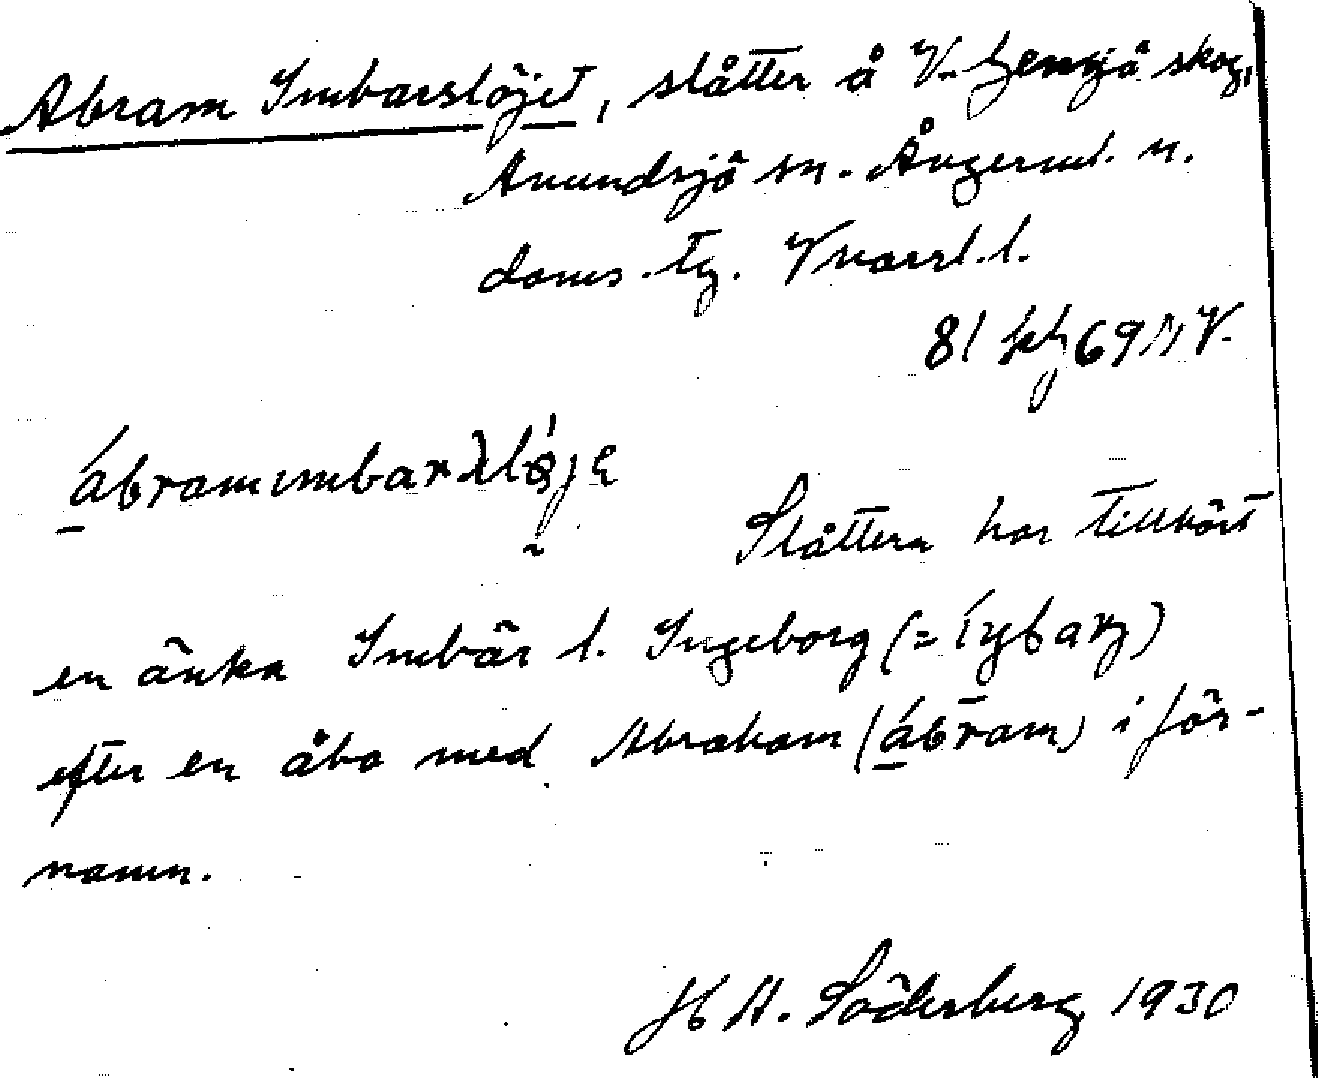 Abram Imbarslöjet, slåtter å V. Gensjö skog,
Anundsjö sn. Ångerml. n.
doms. tg. Vnorrl. l.
81 Kbf 69 NV.
ábramɩmbar
Slåttern har tillhört
en änka Imbär l. Ingeborg (=
efter en åbo med Abraham (ábram) i för-
namn.
H A. Söderberg 1930